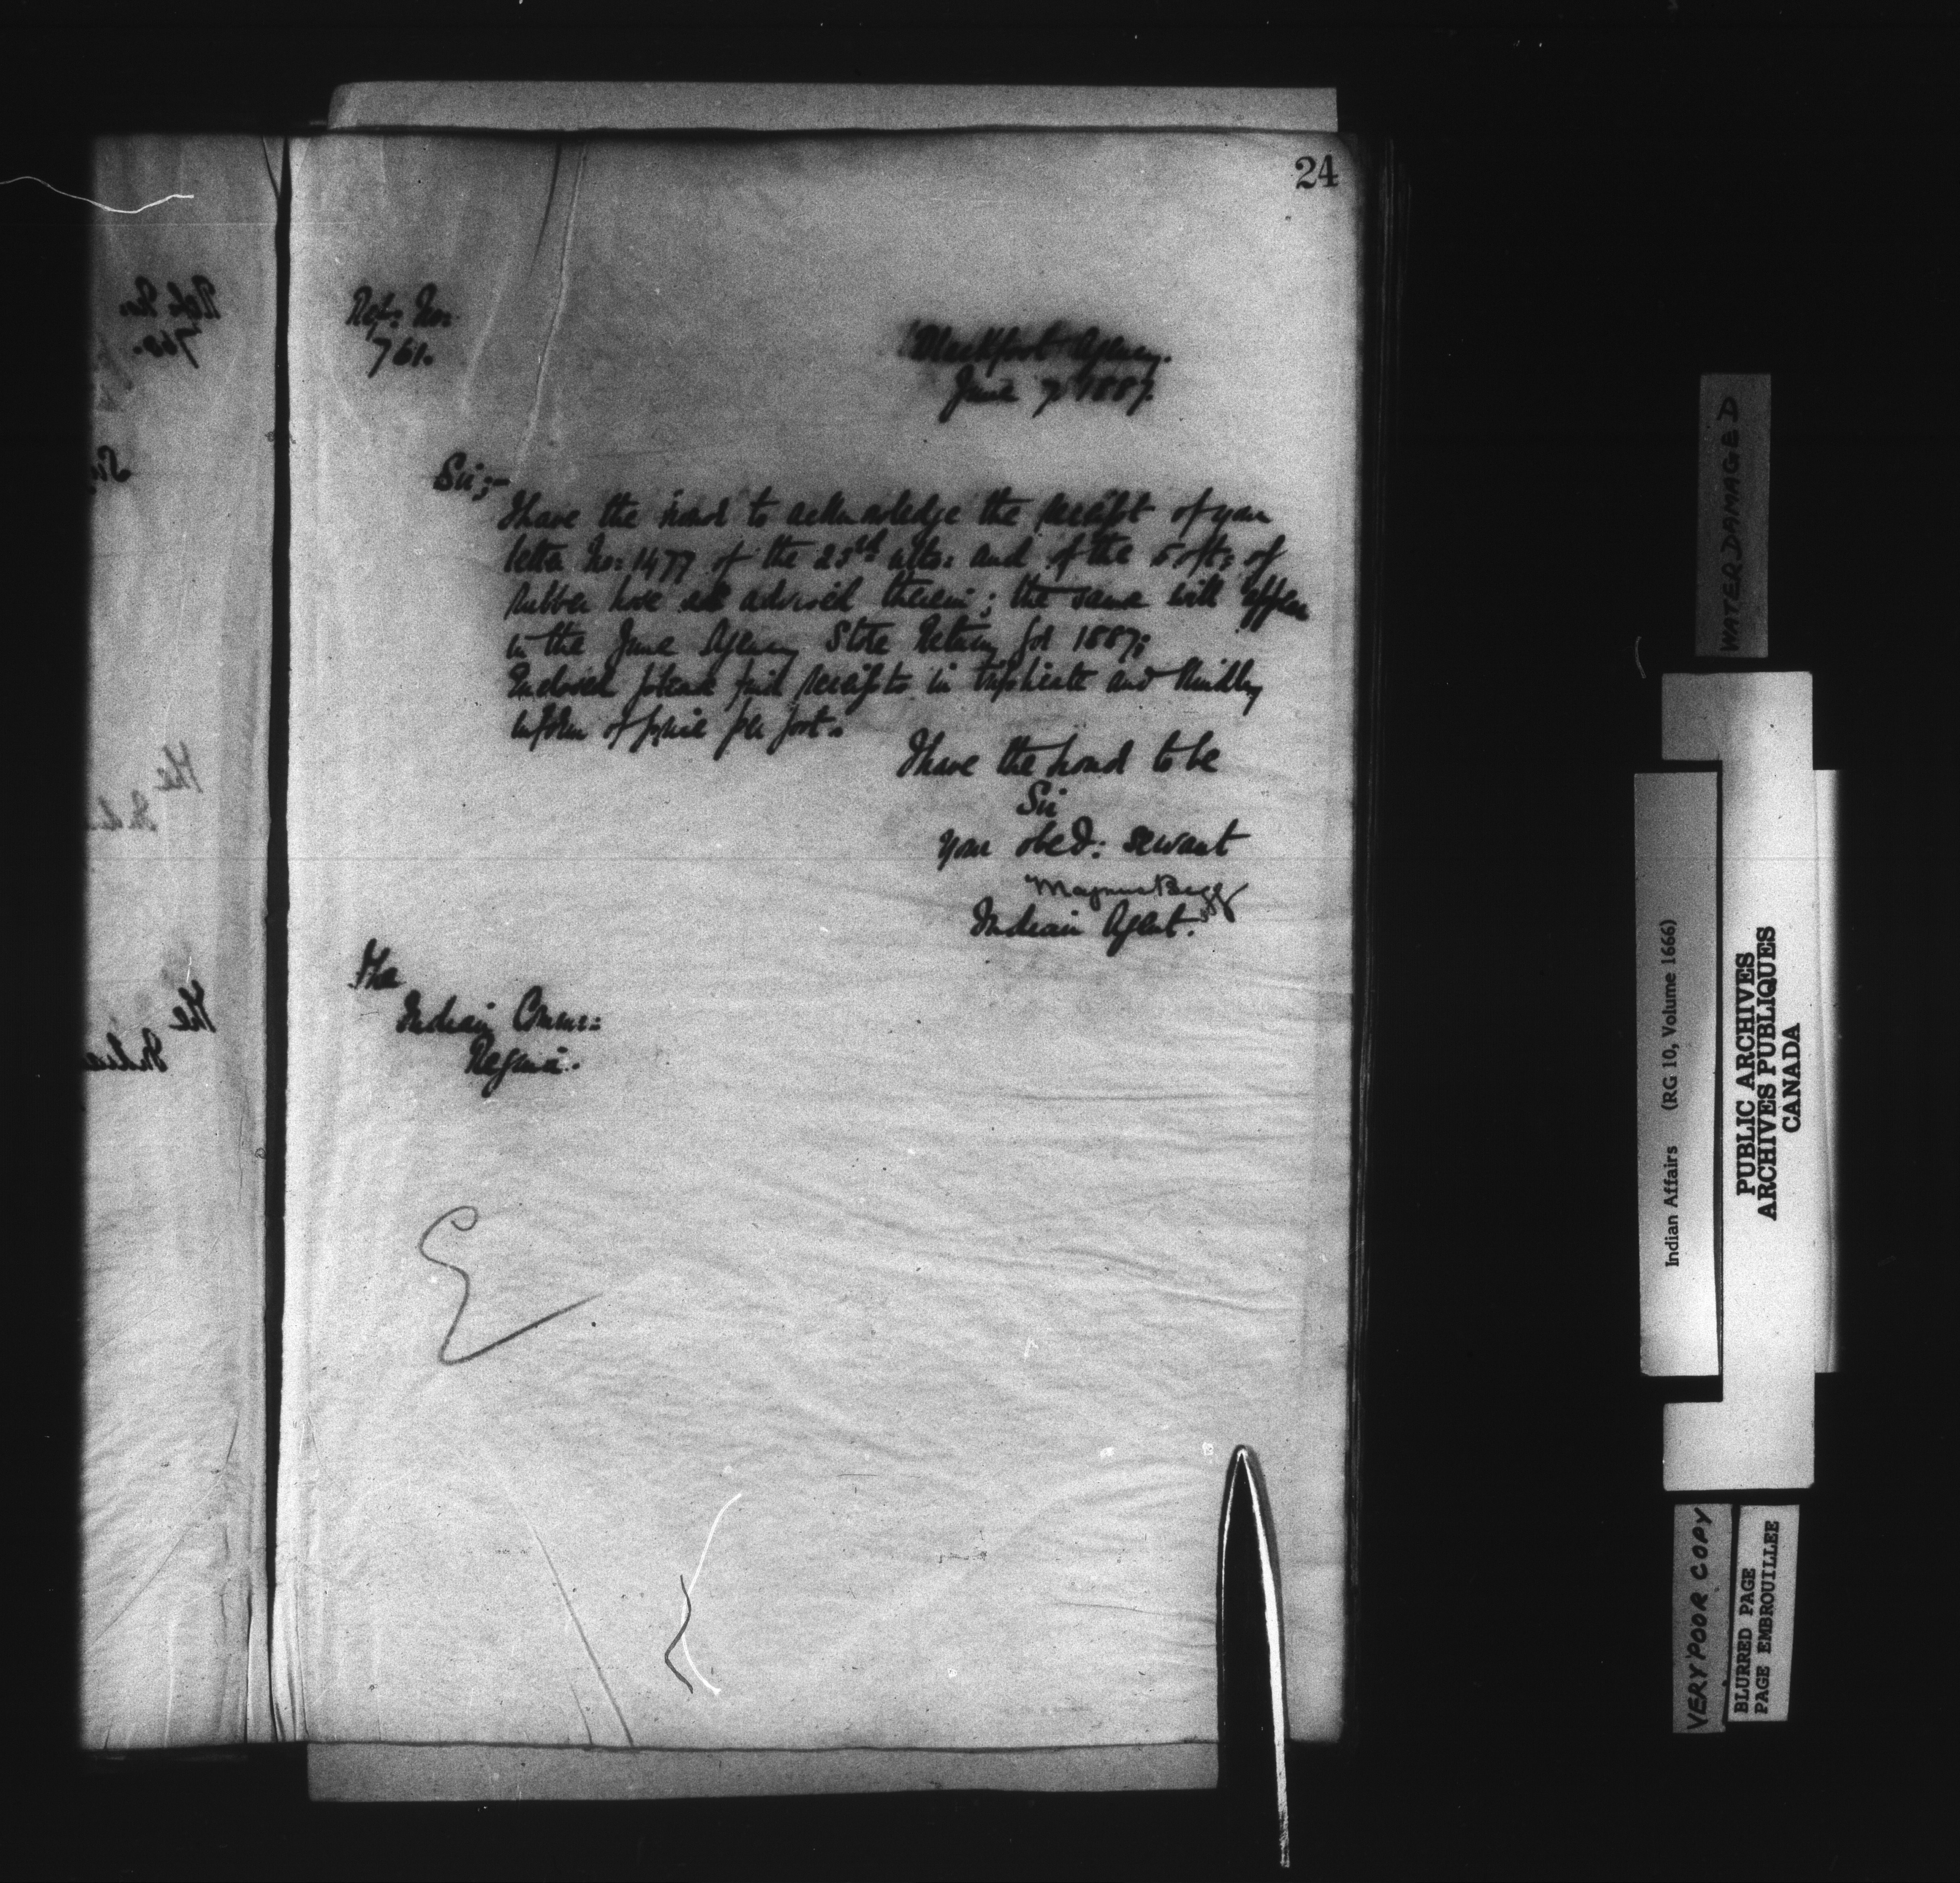 24
Refs: No:
761.
Blackfoot Agency.
June 7, 1887.
Sir;-
I have the honor to acknowledge the receipt of your
letter No: 1477 of the 23rd ulto: and of the 50 ft: of
rubber hose as advised therein; the same will appear
in the June Agency Store Return for 1887;
Enclosed please find receipts in triplicate and kindly
inform of price per foot.
I have the honor to be
Sir
your obed: servant
Magnus Begg
Indian Agent.
The
Indian Comm:
Regina.
Refs No.
760.
The
The
WATERDAMAGED
Indian Affairs (RG 10, Volume 1666)
PUBLIC ARCHIVES
ARCHIVES PUBLIQUES
CANADA
VERY POOR COPY
BLURRED PAGE
PAGE EMBROUILLEE